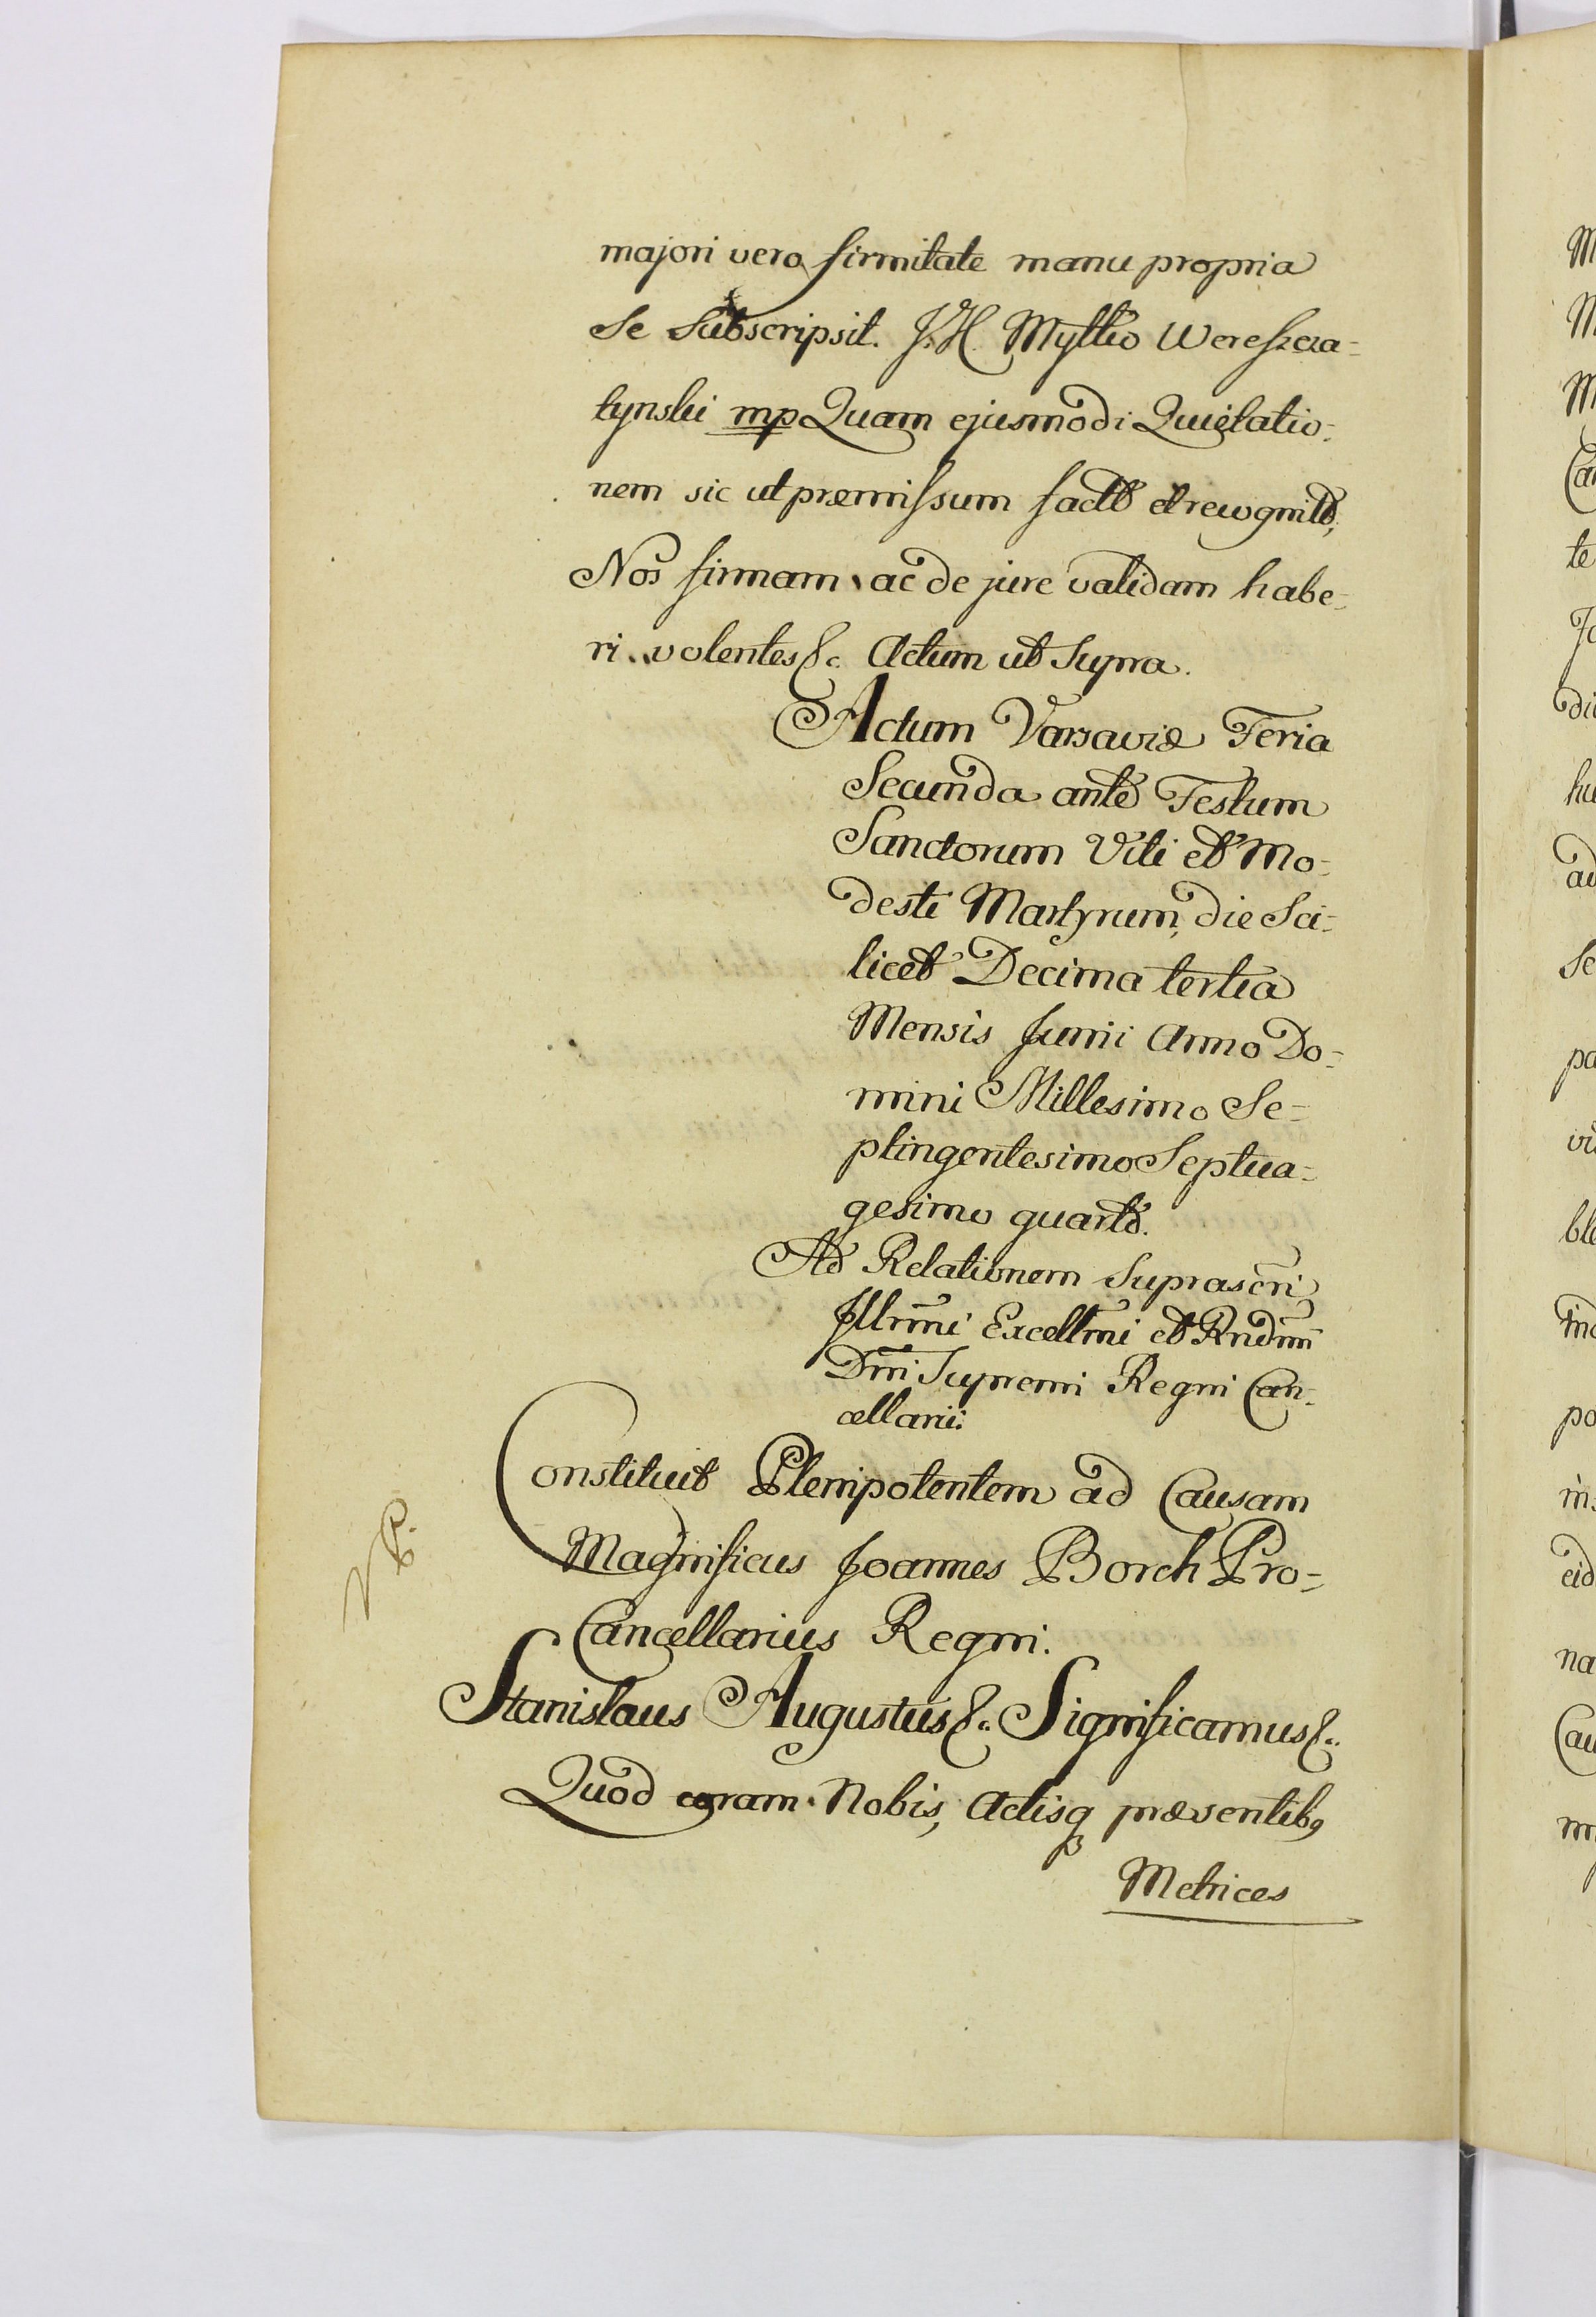 majori vero firmitate manu propria
Se Subscripsit. J. H. Myłło Wereszcza=
tynski mp Quam ejusmodi Quietatio=
nem sic ut præmissum facto et recognito,
Nos firmam ac de jure validam habe=
ri volentes &c. Actum ut Supra.
Actum Varsaviæ Feria
Secunda ante Festum
Sanctorum Viti et Mo=
desti Martyrum, die Sci=
licet Decima tertia
Mensis Junii Anno Do=
mini Millesimo Se=
ptingentesimo Septua=
gesimo quarto.
Ad Relationem Suprascri
Illrmi Excellmi et Rndmi
Dni Supremi Regni Can=
cellarii.
Constituit Plenipotentem ad Causam
Magnificus Joannes Borch Pro=
Cancellarius Regni.
Stanislaus Augustus &c. Significamus &c.
Quod coram Nobis, Actisq præsentibq
Metrices